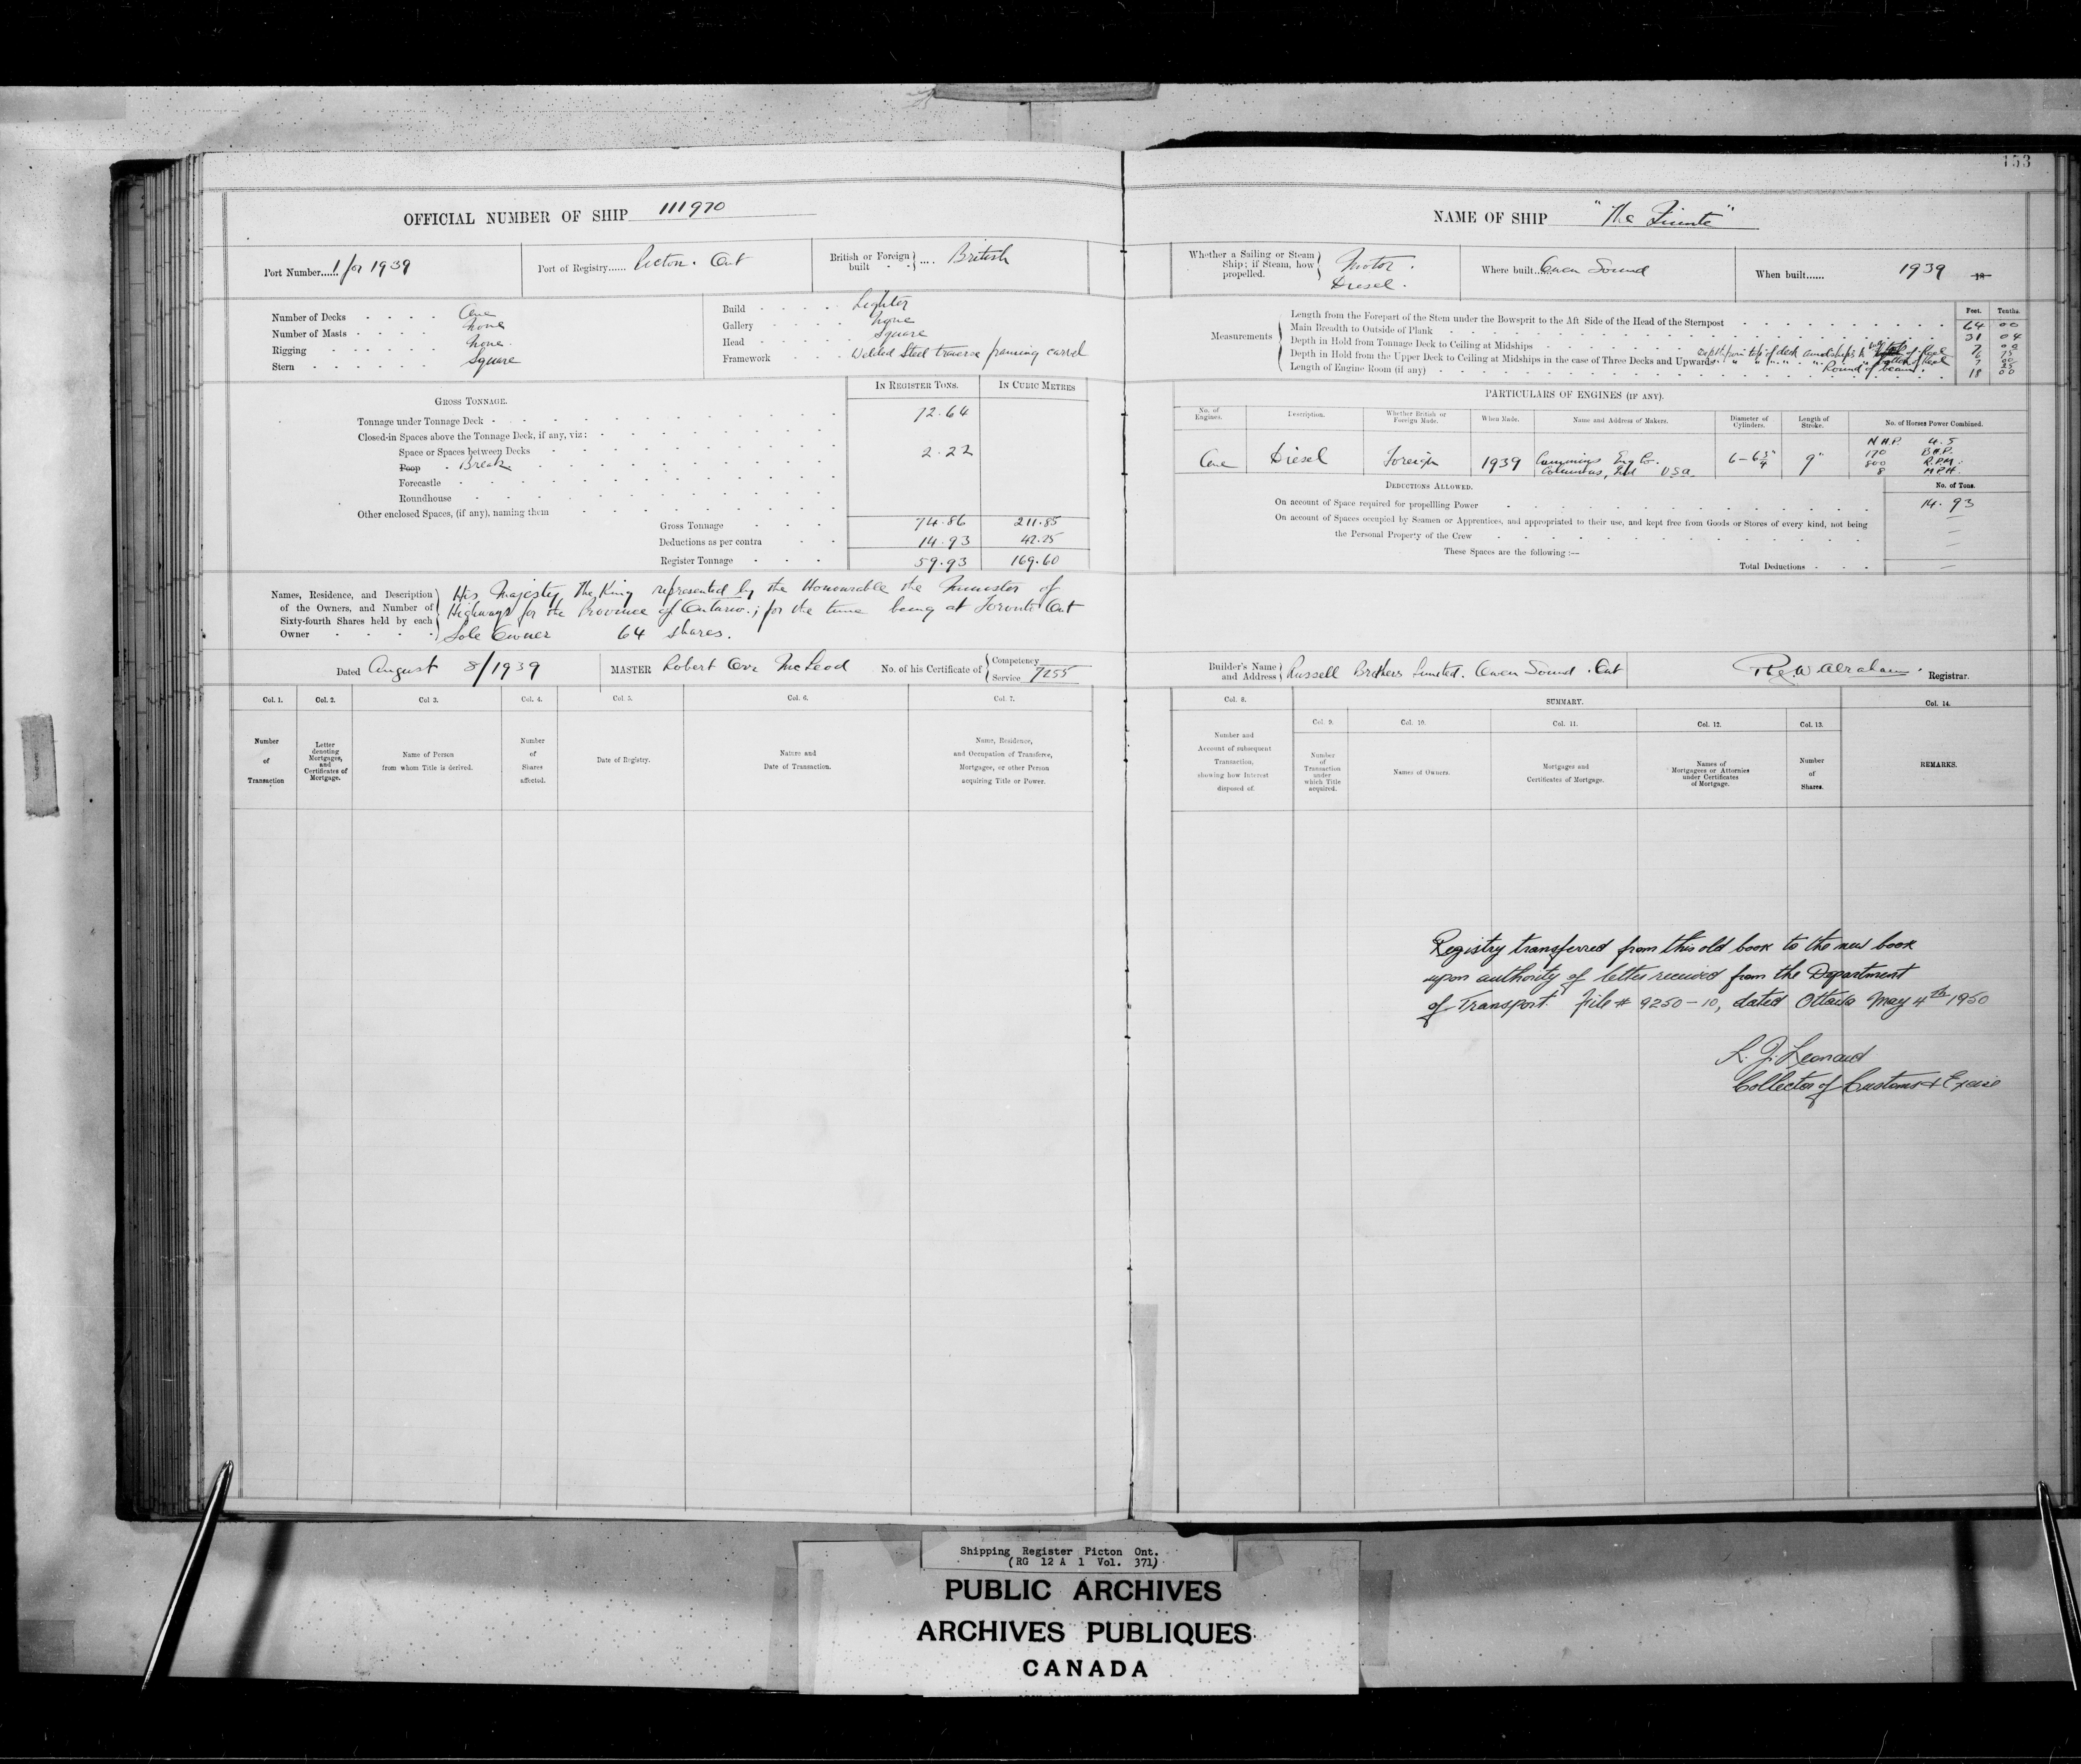 153
OFFICIAL NUMBER OF SHIP 111970
NAME OF SHIP "The Quinte"
Port Number...... 1 for 1939
Port of Registry...... Picton. Ont
British or Foreign built .... British
Whether a Sailing or Steam Ship; if Steam, how propelled. Motor. Diesel.
Where built... Owen Sound
When built...... 1939 18
Number of Decks One
Number of Masts none
Rigging none.
Stern Square
Build Lighter
Gallery none
Head Square
Framework Welded Steel framing carvel
Measurements
Feet. Tenths.
Length from the Forepart of the Stem under the Bowsprit to the Aft Side of the Head of the Sternpost 64 00
Main Breadth to Outside of Plank 31 04
Depth in Hold from Tonnage Deck to Ceiling at Midships 7 00
Depth in Hold from the Upper Deck to Ceiling at Midships in the case of Three Decks and Upwards
Depth from top of deck amidships to
Round of beam.
Length of Engine Room (if any) 18 00
IN REGISTER TONS. IN CUBIC METRES
GROSS TONNAGE.
Tonnage under Tonnage Deck 72.64
Closed-in Spaces above the Tonnage Deck, if any, viz:
Space or Spaces between Decks 2.22
Poop Break
Forecastle
Roundhouse
Other enclosed Spaces, (if any), naming them
Gross Tonnage 74.86 211.85
Deductions as per contra 14.93 42.25
Register Tonnage 59.93 169.60
PARTICULARS OF ENGINES (IF ANY).
No. of Engines. Description. Whether British or Foreign Made. When Made. Name and Address of Makers. Diameter of Cylinders. Length of Stroke. No. of Horses Power Combined.
One Diesel Foreign 1939 Cummings Eng Co. Columbus, Ind USA. 9"
N.H.P. 4.5
170 B.H.P.
800 R.P.M.
8 M.P.H.
DEDUCTIONS ALLOWED. No. of Tons.
On account of Space required for propelling Power 14.93
On account of Spaces occupied by Seamen or Apprentices, and appropriated to their use, and kept free from Goods or Stores of every kind, not being
the Personal Property of the Crew
These Spaces are the following:—
Total Deductions
Names, Residence, and Description of the Owners, and Number of Sixty-fourth Shares held by each Owner
His Majesty, the King represented by the Honourable the Minister of
Highways for the Province of Ontario.; for the time being at Toronto Ont
Sole Owner 64 shares.
Dated August 8/1939
MASTER Robert Orr McLeod
No. of his Certificate of Competency Service 7255
Builder's Name and Address Russell Brothers Limited. Owen Sound. Ont
Abraham. Registrar.
Col. 1. Col. 2. Col 3. Col. 4. Col. 5. Col. 6. Col. 7.
Number of Transaction
Letter denoting Mortgages, and Certificates of Mortgage.
Name of Person from whom Title is derived.
Number of Shares affected.
Date of Registry.
Nature and Date of Transaction.
Name, Residence, and Occupation of Transferee, Mortgagee, or other Person acquiring Title or Power.
Col. 8. SUMMARY. Col. 14.
Col. 9. Col. 10. Col. 11. Col. 12. Col. 13.
Number and Account of subsequent Transaction, showing how Interest disposed of.
Number of Transaction under which Title acquired.
Names of Owners.
Mortgages and Certificates of Mortgage.
Names of Mortgagees or Attornies under Certificates of Mortgage.
Number of Shares.
REMARKS.
Registry transferred from this old book to the new book
upon authority of letter received from the Department
of Transport File # 9250-10, dated Ottawa May 4th 1950
Leonard
Collector of Customs & Excise
Shipping Register Picton Ont.
(RG 12 A 1 Vol. 371)
PUBLIC ARCHIVES
ARCHIVES PUBLIQUES
CANADA